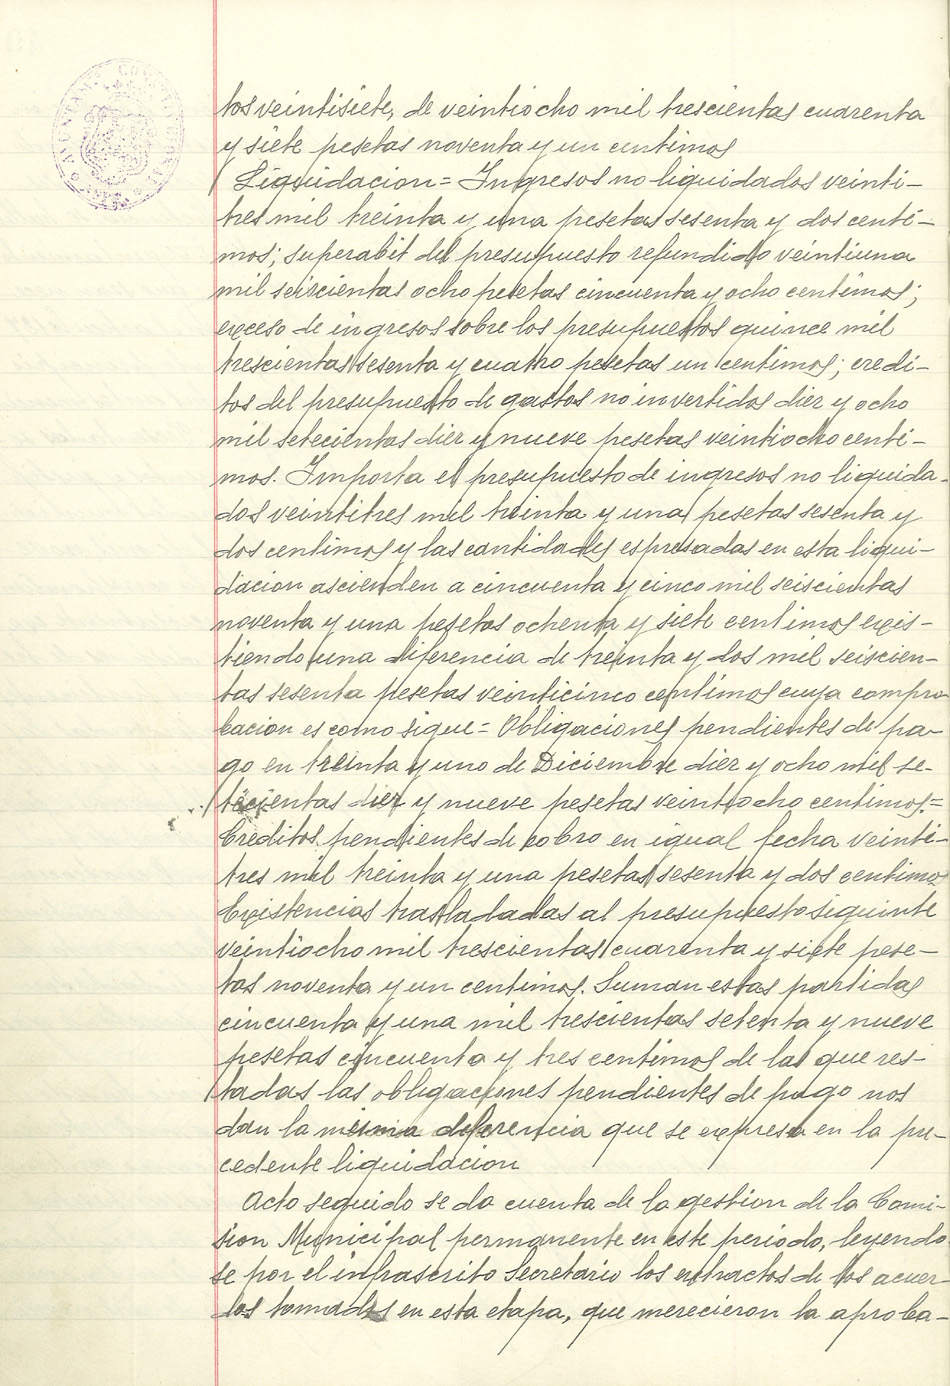 tos veintisiete, de veintiocho mil trescientas cuarenta
y siete pesetas noventa y un centimos
Liquidacion = Ingresos no liquidados veinti-
tres mil treinta y una pesetas sesenta y dos centi-
mos; superabit del presupuesto refundido veintiuna
mil seiscientas ocho pesetas cincuenta y ocho centimos;
exceso de ingresos sobre los presupuestos quince mil
trescientas sesenta y cuatro pesetas un centimos; credi-
tos del presupuesto de gastos no invertidos diez y ocho
mil setecientas diez y nueve pesetas veintiocho centi-
mos. Importa el presupuesto de ingresos no liquida-
dos veintitres mil treinta y una pesetas sesenta y
dos centimos y las cantidades espresadas en esta liqui-
dacion ascienden a cincuenta y cinco mil seiscientas
noventa y una pesetas ochenta y siete centimos exis-
tiendo una diferencia de treinta y dos mil seiscien-
tas sesenta pesetas veinticinco centimos cuya compro
bacion es como sigue = Obligaciones pendientes de pa-
go en treinta y uno de Diciembre diez y ocho mil se-
tecientas diez y nueve pesetas veintiocho centimos. =
Creditos pendientes de cobro en igual fecha veinti-
tres mil treinta y una pesetas sesenta y dos centimos
Existencias trasladadas al presupuesto siguiente
veintiocho mil trescientas cuarenta y siete pese-
tas noventa y un centimos. Suman estas partidas
cincuenta y una mil trescientas setenta y nueve
pesetas cincuenta y tres centimos de las que res-
tadas las obligaciones pendientes de pago nos
dan la misma diferencia que se expresa en la pre-
cedente liquidacion
Acto seguido se da cuenta de la gestion de la Comi-
sion Municipal permanente en este periodo, leyendo
se por el infrascrito Secretario los extractos de los acuer-
dos tomados en esta etapa, que merecieron la aproba-